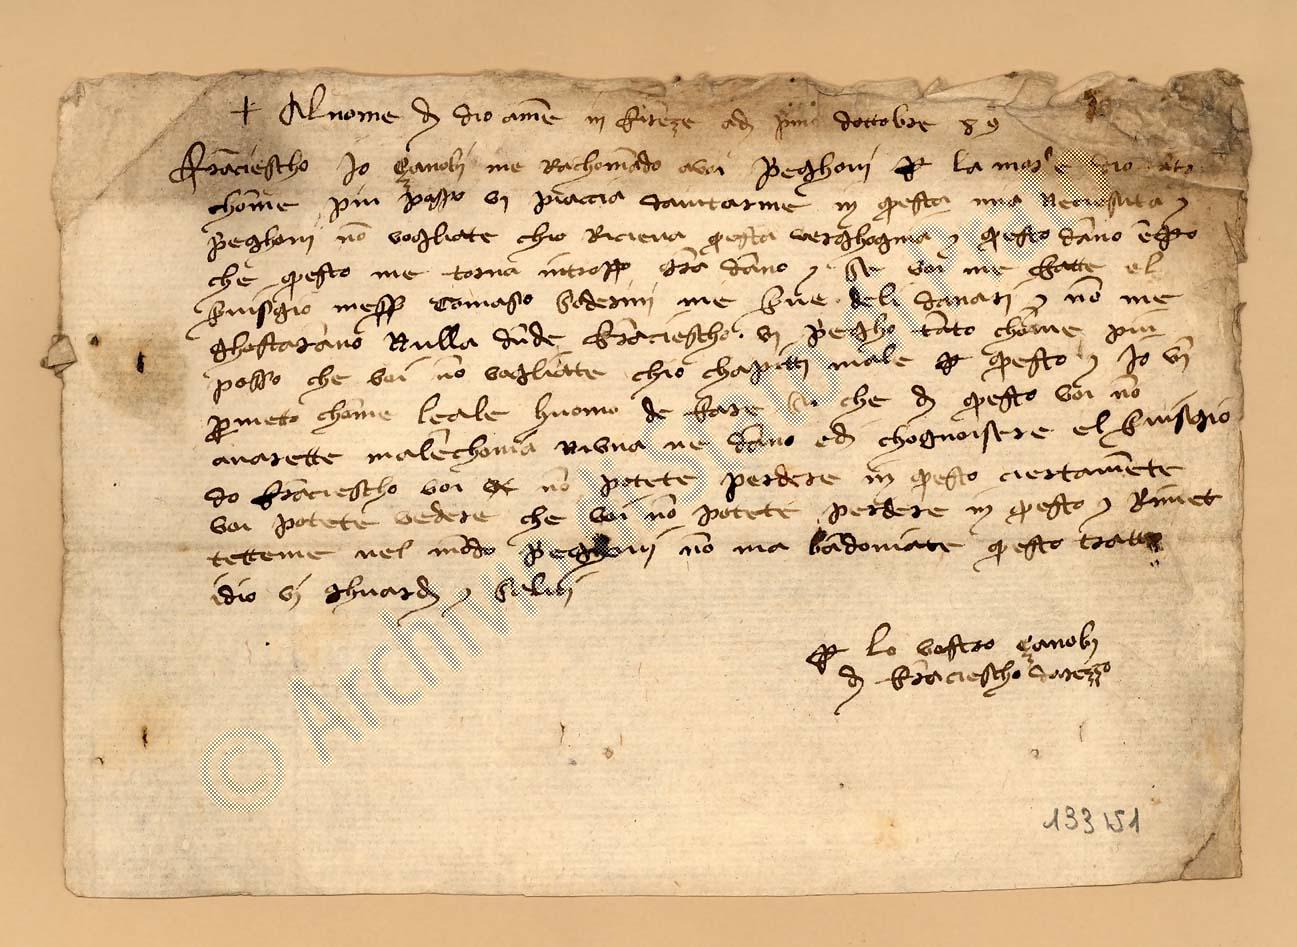 + Al nome di dio ame in firēze adi primo dottobre 89
Frāciescho Io Çanobi me rachomādo avoi preghovi per lamor e dio tāto
chome piu posso vi piaccia daitarme in questa mia necissita e
preghovi nō vogliate chio riceva questa verghognia e questo dāno
che questo me torna introppo grā dāno e se voi me fatte el
servisgio mess Tomaso Soderini me serve deli danari e nō me
ghostarāno nulla dūde frāciescho vi pregho tāto chome piu
posso che voi nō vogliate chio chapitti male per questo e Io vi
prometo chome leale huomo de fare si che di questo voi nō
avarette malechonia niuna ne dāno edi chognoisere el servisgio
do frāciescho voi nō potete perdere in questo ciertamēte
voi potete vedere che voi nō potete perdere in questo e rimet
tetteme nel mōdo preghovi nō ma bādoniate questo tratto
idio vi ghuardi e salvi
per lo vostro Çanobi
di frāciescho darezzo
133 151
© Archivio di Stato